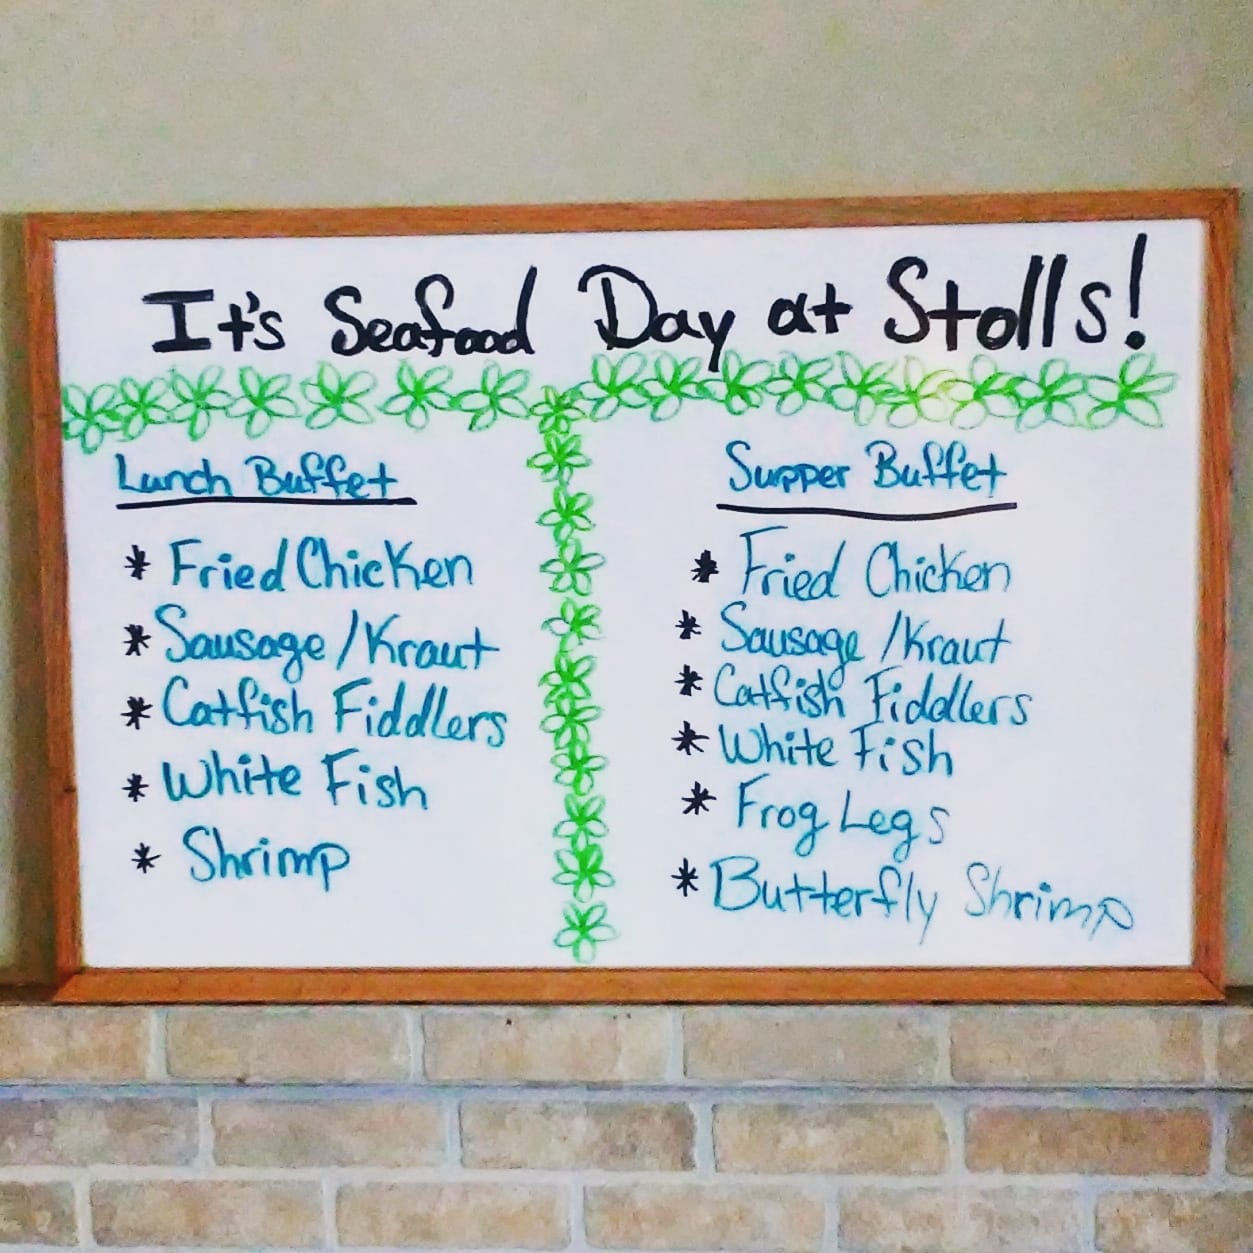 It's Seafood Day at Stolls!
Lunch Buffet
* Fried Chicken
* Sausage/Kraut
* Catfish Fiddlers
* White Fish
* Shrimp
Supper Buffet
* Fried Chicken
* Sausage/Kraut
* Catfish Fiddlers
* White Fish
* Frog Legs
* Butterfly Shrimp